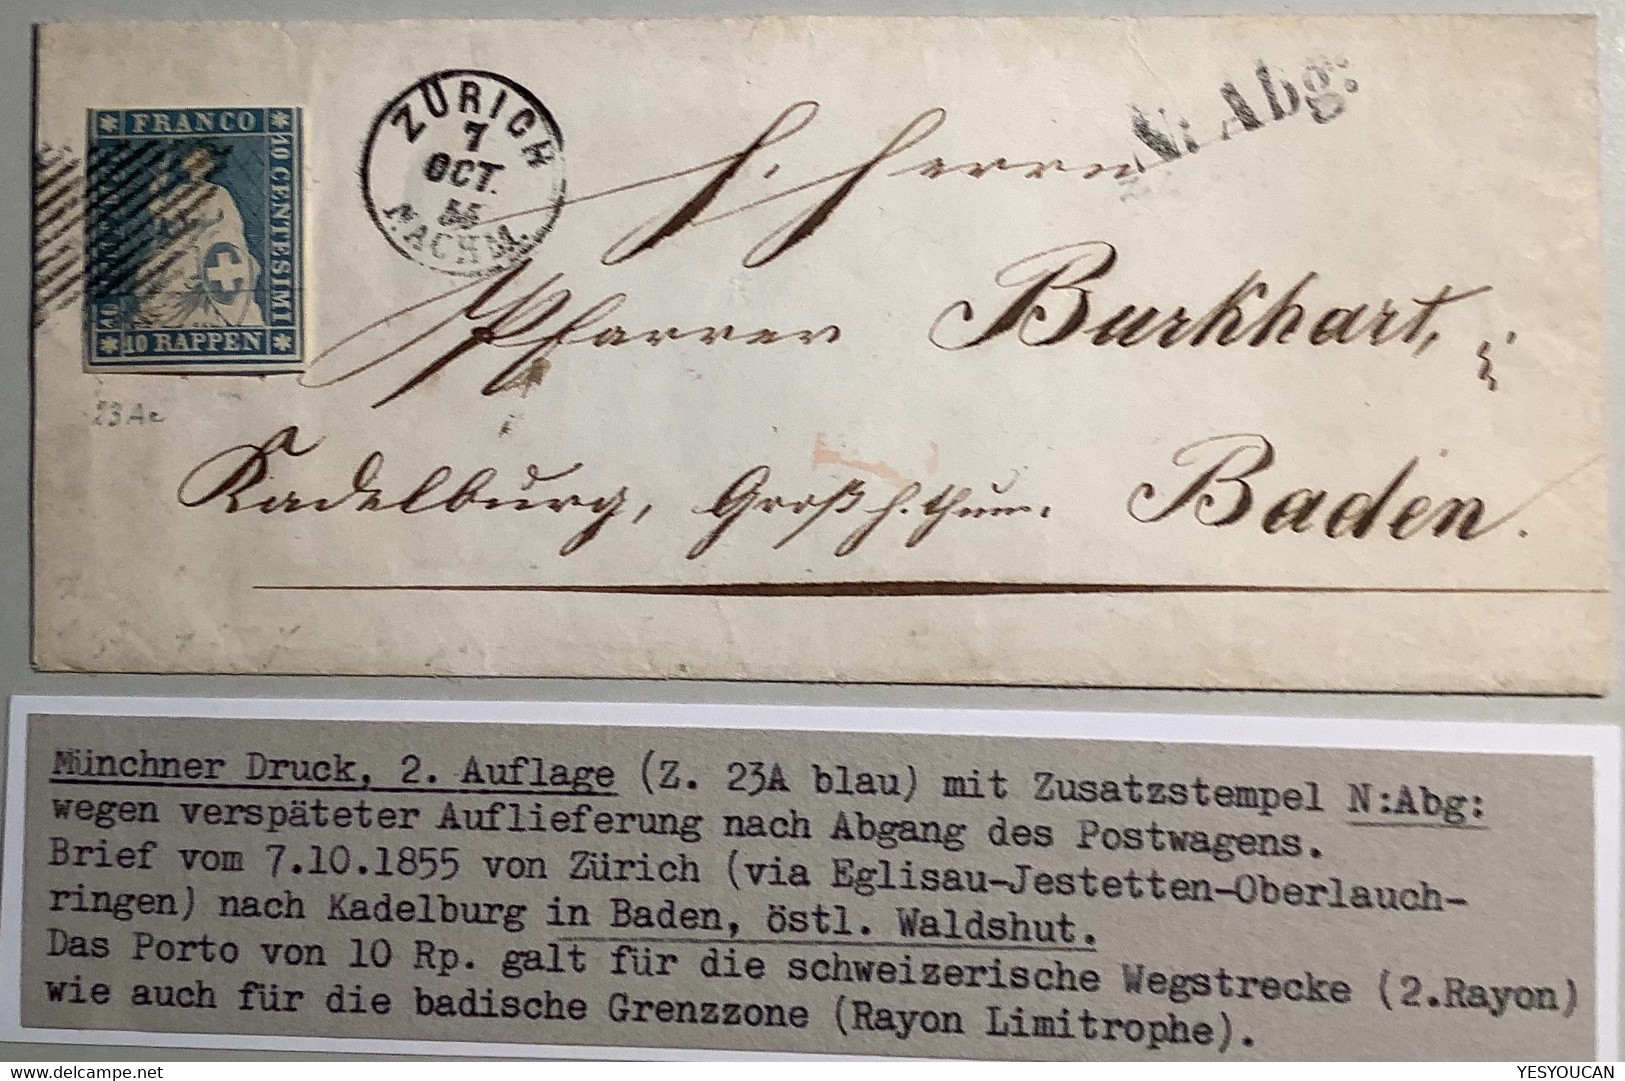 FRANCO
10 CENTESIMI
10 RAPPEN
ZÜRICH
7
OCT.
55
NACHM.
N: Abg:
H. Herrn
Pfarrer Burkhart,
Kadelburg, Großh.thum. Baden.
23A
Münchner Druck, 2. Auflage (Z. 23A blau) mit Zusatzstempel N:Abg:
wegen verspäteter Auflieferung nach Abgang des Postwagens.
Brief vom 7.10.1855 von Zürich (via Eglisau-Jestetten-Oberlauch-
ringen) nach Kadelburg in Baden, östl. Waldshut.
Das Porto von 10 Rp. galt für die schweizerische Wegstrecke (2.Rayon)
wie auch für die badische Grenzzone (Rayon Limitrophe).
YESYOUCAN